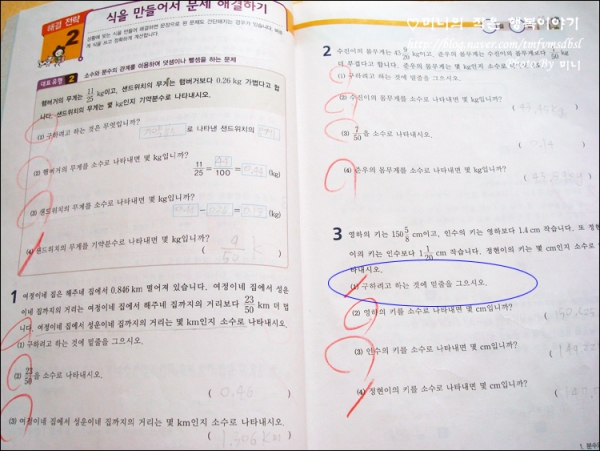 해결 전략
2
식을 만들어서 문제 해결하기
상황에 맞는 식을 만들어 해결하면 문장으로 된 문제도 간단해지는 경우가 있습니다.
게 식을 쓰고 정확하게 계산합니다.
대표 유형 2 소수와 분수의 관계를 이용하여 덧셈이나 뺄셈을 하는 문제
햄버거의 무게는 11/25 kg이고, 샌드위치의 무게는 햄버거보다 0.26 kg 가볍다고 합
니다. 샌드위치의 무게는 몇 kg인지 기약분수로 나타내시오.
(1) 구하려고 하는 것은 무엇입니까?
로 나타낸 샌드위치의
(2) 햄버거의 무게를 소수로 나타내면 몇 kg입니까?
11/25 = 44/100 = 0.44 (kg)
(3) 샌드위치의 무게를 소수로 나타내면 몇 kg입니까?
0.44 - 0.26 = 0.18 (kg)
(4) 샌드위치의 무게를 기약분수로 나타내면 몇 kg입니까?
( 9/50 k )
1 여정이네 집은 해주네 집에서 0.846 km 떨어져 있습니다. 여정이네 집에서 성운
이네 집까지의 거리는 여정이네 집에서 해주네 집까지의 거리보다 23/50 km 더 멉
니다. 여정이네 집에서 성운이네 집까지의 거리는 몇 km인지 소수로 나타내시오.
(1) 구하려고 하는 것에 밑줄을 그으시오.
(2) 23/50을 소수로 나타내시오.
( 0.46 )
(3) 여정이네 집에서 성운이네 집까지의 거리는 몇 km인지 소수로 나타내시오.
( 1.306 km )
♡미니의 작은 행복이야기
http://blog.naver.com/tmfvmsdbsl
Photo By 미니
2 수진이의 몸무게는 45
더 무겁다고 합니다. 준우의 몸무게는 몇 kg인지 소수로
(1) 구하려고 하는 것에 밑줄을 그으시오.
(2) 수진이의 몸무게를 소수로 나타내면 몇 kg입니까?
(3) 7/50을 소수로 나타내시오.
( 0.14
(4) 준우의 몸무게를 소수로 나타내면 몇 kg입니까?
3 영하의 키는 150 5/8 cm이고, 인수의 키는 영하보다 1.4 cm 작습니다. 또 정현
이의 키는 인수보다 1 1/20 cm 작습니다. 정현이의 키는 몇 cm인지 소수로
타내시오.
(1) 구하려고 하는 것에 밑줄을 그으시오.
(2) 영하의 키를 소수로 나타내면 몇 cm입니까?
( 150.625
(3) 인수의 키를 소수로 나타내면 몇 cm입니까?
( 149.22
(4) 정현이의 키를 소수로 나타내면 몇 cm입니까?
1. 분수와